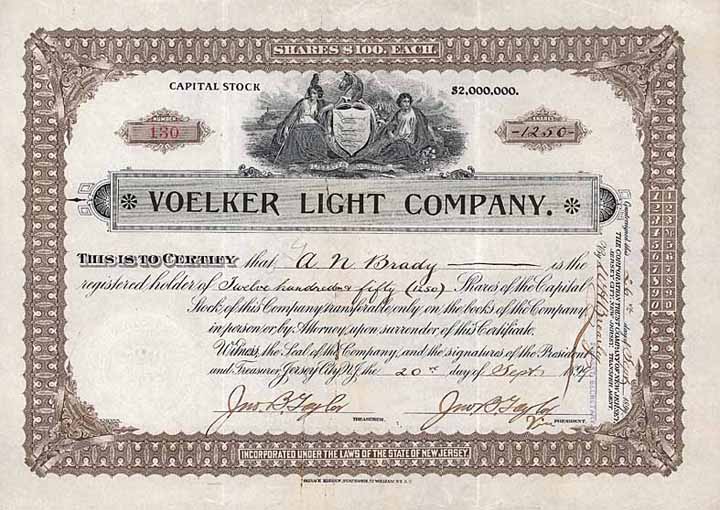 SHARES $100. EACH.
CAPITAL STOCK $2,000,000.
NUMBER
130
SHARES
-1250-
VOELKER LIGHT COMPANY.
THIS IS TO CERTIFY that A N Brady is the
registered holder of Twelve hundred & fifty (1250) Shares of the Capital
Stock of this Company transferable only on the books of the Company,
in person or by Attorney upon surrender of this Certificate.
Witness, the Seal of the Company, and the signatures of the President
and Treasurer, Jersey City N.J. the 20th day of Sept 1899
Jno. B. Taylor
TREASURER.
Jno. B. Taylor
Vice PRESIDENT.
INCORPORATED UNDER THE LAWS OF THE STATE OF NEW JERSEY.
Countersigned this day of
THE CORPORATION TRUST COMPANY OF NEW JERSEY,
JERSEY CITY, NEW JERSEY, TRANSFER AGENT.
By